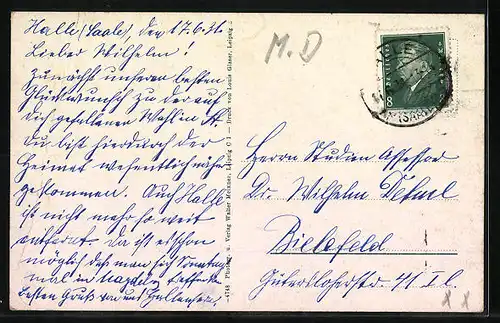 Halle (Saale), den 17.6.31.
Lieber Wilhelm!
Zunächst unseren besten
Glückwunsch zu der auf
dich gefallenen Wahl in
Du bist hierdurch der
Heimat wesentlich näher
gekommen. Auch Halle
ist nicht mehr so weit
entfernt. Da ist es schon
möglich daß man sich Sonntags
mal in
besten Gruß
M.D
4748 Photogr. u. Verlag Walter Meixner, Leipzig C 1 — Druck von Louis Glaser, Leipzig
HALLE
(SAALE)
8
Herrn Studien Assessor
Dr. Wilhelm
Bielefeld
Gütersloherstr. 41 I. l.
x x